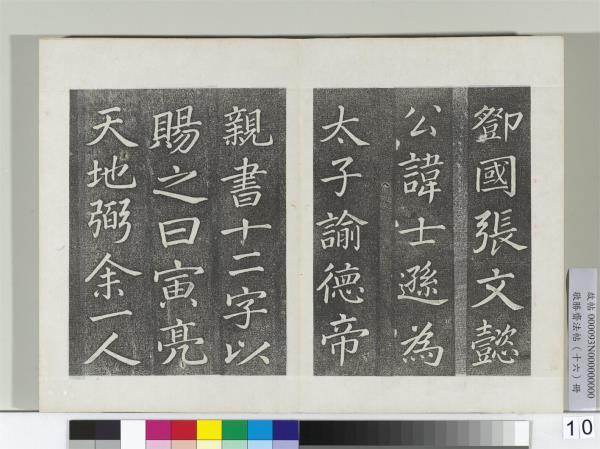 鄧國張文懿
公諱士遜為
太子諭德帝
親書十二字以
賜之曰寅亮
天地弼余一人
故帖000093N000000000
敬勝齋法帖(十六)冊
10